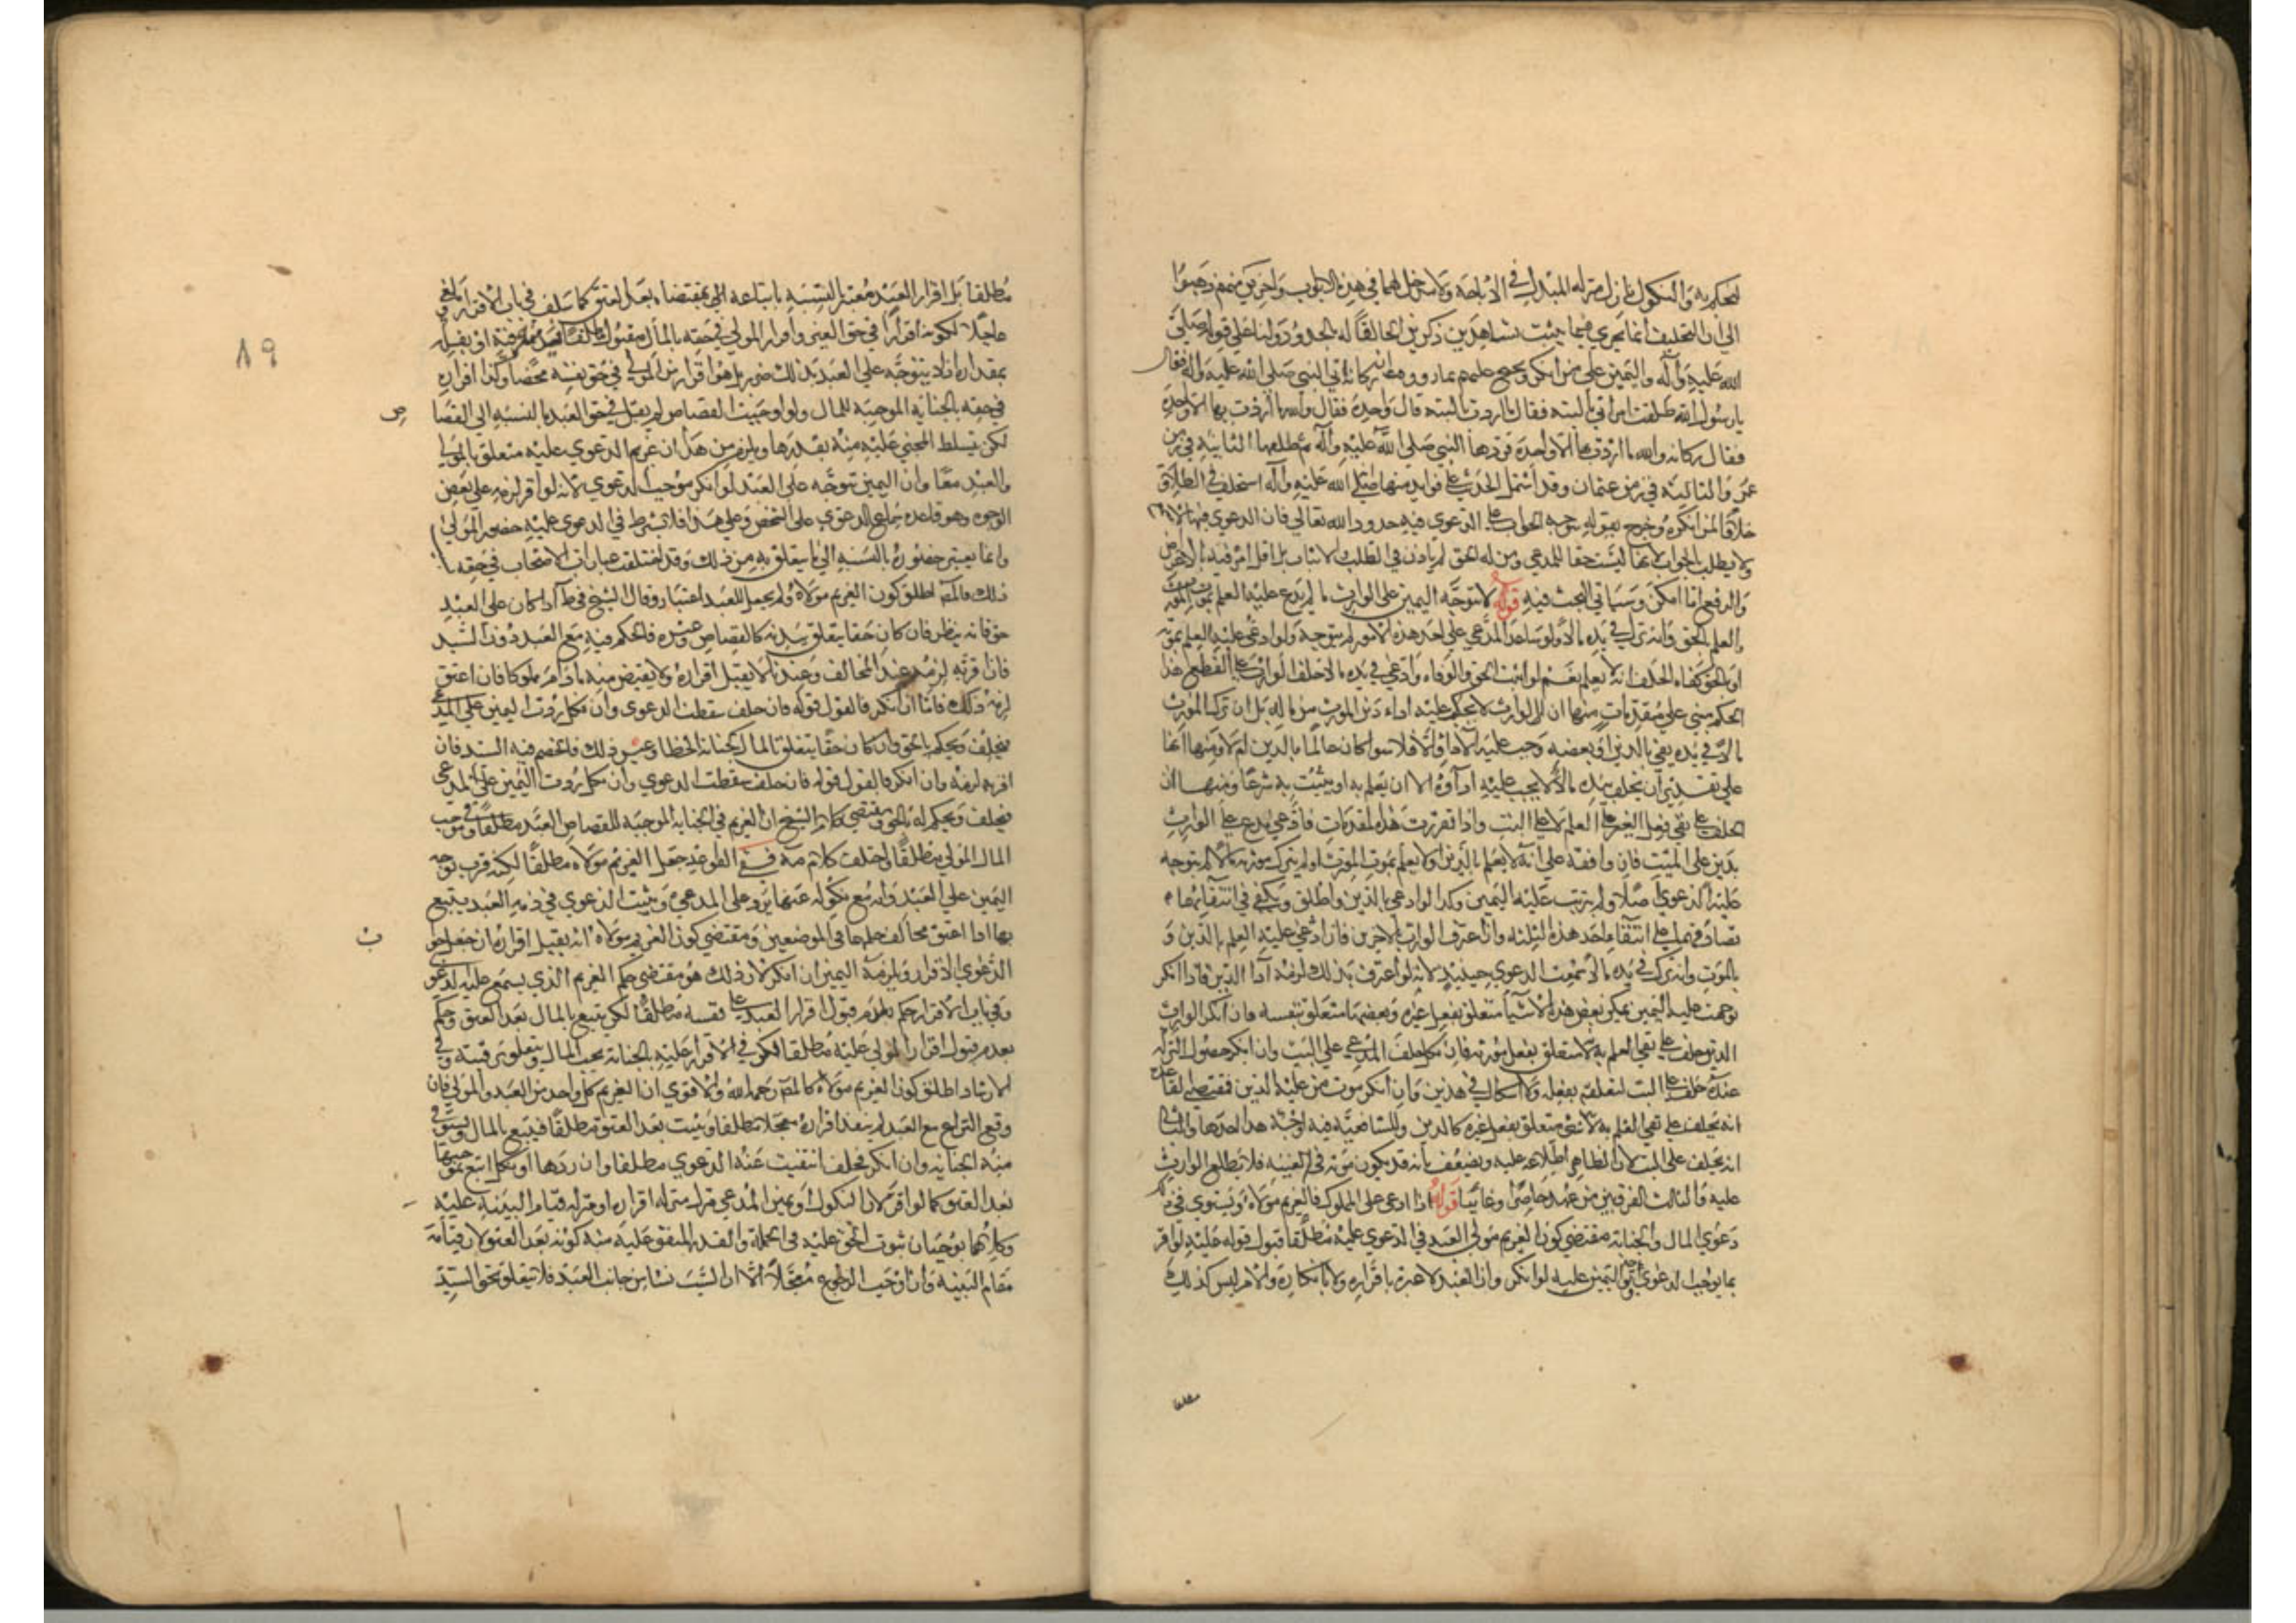 لتحكم به والنكول نازل منزلة المبدل في الاباحة ولا مدخل لهما في هذه الابواب واخرين منهم ذهبوا
الى ان التحليف انما يجري فيما يثبت بشاهدين ذكرين الحاقا له بالحدود ولنا على قوله صلى
الله عليه وآله واليمين على من انكر ويحتج عليهم بما روو من ان ركانة اتى النبي صلى الله عليه وآله فقال
يا رسول الله طلقت امراتي البتة فقال ما اردت بالبتة قال واحدة فقال والله ما اردت بها الا واحدة
فقال ركانة والله ما اردت بها الا واحدة فردها النبي صلى الله عليه وآله ثم طلقها الثانية في زمن
عمر والثالثة في زمن عثمان وقد اشتمل الحديث على فوائد منها انه صلى الله عليه وآله استحلف في الطلاق
خلافا لمن انكره وخرج بقوله يتوجه الجواب على الدعوى فيه حدود الله تعالى فان الدعوى فيها لا
ولا يطلب الجواب لانها ليست حقا للمدعي ومن له الحق لم ياذن في الطلب والاثبات بل اقل امر فيه بالاعراض
والدفع ما امكن وسياتي البحث فيه قوله لا يتوجه اليمين على الوارث ما لم يدع عليه العلم بموت المورث
والعلم بالحق وانه ترك في يده مالا ولو ساعد المدعي على احد هذه الامور لم يتوجه ولو ادعى عليه العلم بموته
او بالحق كفاه الحلف انه لا يعلم نعم لو اثبت الحق والوفاة وادعى في يده مالا حلف الوارث على القطع هذا
الحكم مبني على مقدمات منها ان الوارث لا يجب عليه اداء دين المورث من ماله بل ان ترك المورث
مالا في يده يفي بالدين او بعضه وجب عليه الاداء والا فلا سوا كان عالما بالدين ام لا ومنها انما
على تقدير ان يخلف بيده مالا لا يجب عليه اداؤه الا ان يعلم به او يثبت به شرعا ومنها ان
الحلف على نفي فعل الغير على العلم لا على البت واذا تقررت هذه المقدمات فاذا ادعى مدع على الوارث
بدين على الميت فان وافقه على انه لا يعلم بالدين او لا يعلم بموت المورث او لم يترك مورثه مالا لم يتوجه
عليه الدعوى اصلا ولم يترتب عليه اليمين وكذا لو ادعى بالدين واطلق ويكفي في انتفائها
تصادقهما على انتفاء احد هذه الثلثة وان اعترف الوارث بالاخرين فان ادعى عليه العلم بالدين و
بالموت وانه ترك في يده مالا سمعت الدعوى حينئذ لانه لو اعترف بذلك لزمه اداء الدين فاذا انكر
توجهت عليه اليمين لكن بعض هذه الاشياء متعلق بفعل غيره وبعضها متعلق بنفسه فان انكر الوارث
الدين حلف على نفي العلم به لانه متعلق بفعل مورثه فان نكل حلف المدعي على البت وان انكر حصول التركة
عنده حلف على البت لتعلقه بفعله ولا اشكال في هذين وان انكر موت من عليه الدين فمقتضى القاعدة
انه يحلف على نفي العلم به لانه نفي متعلق بفعل غيره كالدين وللشافعية فيه اوجه هذا احدها والثاني
انه يحلف على البت لان الظاهر اطلاعه عليه ويضعف بانه قد يكون موته في الغيبة فلا يطلع الوارث
عليه والثالث الفرق بين من عهد حاضرا وغائبا قوله اذا ادعى على المملوك فالغريم مولاه ويستوي في ذلك
دعوى المال والجناية مقتضى كون الغريم مولى العبد في الدعوى عليه مطلقا قبول قوله عليه لو اقر
بما يوجب الدعوى وتوجه اليمين عليه لو انكر وان العبد لا عبرة باقراره ولا بانكاره والامر ليس كذلك
مطلقا
٨٩
مطلقا بل اقرار العبد معتبر بالنسبة الى اتباعه بمقتضاه بعد العتق كما سلف في باب الاقرار ويلغى
عاجلا لكونه اقرارا في حق الغير واقرار المولى في حقه بالمال مقبول مطلقا
بمقداره اذ لا يتوجه على العبد بذلك ضرر بل هو اقرار من المولى في حق نفسه محضا وكذا اقراره
في حقه بالجناية الموجبة للمال ولو اوجبت القصاص لم يقبل في حق العبد بالنسبة الى القصا
ص
لكن يتسلط المجني عليه منه بقدرها ويلزم من هذا ان غريم الدعوى عليه متعلق بالمولى
والعبد معا وان اليمين تتوجه على العبد لو انكر موجب الدعوى لانه لو اقر لزمه على بعض
الوجوه وهو قاعدة سماع الدعوى على الشخص وعلى هذا فلا يشترط في الدعوى عليه حضور المولى
وانما يعتبر حضوره بالنسبة الى ما يتعلق به من ذلك وقد اختلفت عبارات الاصحاب في حقه
ذلك فالمص اطلق كون الغريم مولاه ولم يجعل للعبد اعتبارا وقال الشيخ في ط اذا كان على العبد
حق فانه ينظر فان كان حقا يتعلق ببدنه كالقصاص وغيره فالحكم فيه مع العبد دون السيد
فان اقر به لزمه عند المخالف وعندنا لا يقبل اقراره ولا يقتص منه ما دام مملوكا فان اعتق
لزمه ذلك فاما ان انكر فالقول قوله فان حلف سقطت الدعوى وان نكل ردت اليمين على المدعي
فيحلف ويحكم بالحق وان كان حقا يتعلق بالمال كجناية الخطا وغير ذلك فالخصم فيه السيد فان
اقر به لزمه وان انكر فالقول قوله فان حلف سقطت الدعوى وان نكل ردت اليمين على المدعي
فيحلف ويحكم له بالحق ومقتضى كلام الشيخ ان الغريم في الجناية الموجبة للقصاص العبد مطلقا وفي موجب
المال المولى مطلقا واختلف كلام مه ففي القواعد جعل الغريم مولاه مطلقا لكنه قرب توجه
اليمين على العبد وانه مع نكوله عنها يرد على المدعي ويثبت الدعوى في ذمة العبد يتبع
بها اذا اعتق مخالف حكمها في الموضعين ومقتضى كون الغريم مولاه انه يقبل اقراره ان جعل جو
ب
الدعوى الاقرار ويلزمه اليمين ان انكر لان ذلك هو مقتضى حكم الغريم الذي يسمع عليه الدعوى
وفي باب الاقرار حكم بعدم قبول اقرار العبد على نفسه مطلقا لكن يتبع بالمال بعد العتق وحكم
بعدم قبول اقرار المولى عليه مطلقا لكن في الاقرار عليه بالجناية يجب المال ويتعلق برقبته وفي
الارشاد اطلق كون الغريم مولاه كالمص رحمه الله والاقوى ان الغريم كل واحد من العبد والمولى فان
وقع النزاع مع العبد لم ينفذ اقراره معجلا مطلقا ويثبت بعد العتق مطلقا فيتبع بالمال ويستوفى
منه الجناية وان انكر فحلف انتفيت عنه الدعوى مطلقا وان ردها او نكل اتبع بموجبها
بعد العتق كما لو اقر لان النكول او يمين المدعي منزل منزلة اقراره او منزلة قيام البينة عليه
وكلاهما يوجبان ثبوت الحق عليه في الجملة والقدر المتفق عليه منه كونه بعد العتق لان قيامه
مقام البينة وان اوجب الرجوع معجلا الا ان السبب نشا من جانب العبد فلا يتعلق بحق السيد